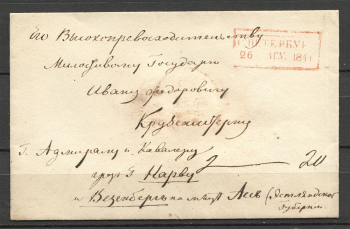 Его Высокопревосходительству
С.ПЕТЕРБУР
26 АВГ. 184
Милостивому Государю
Ивану Федоровичу
Крузенштерну
Г. Адмиралу и Кавалеру
20
чрез г. Нарву
и Везенберг на мызу Асс (Эстляндской
Губернии